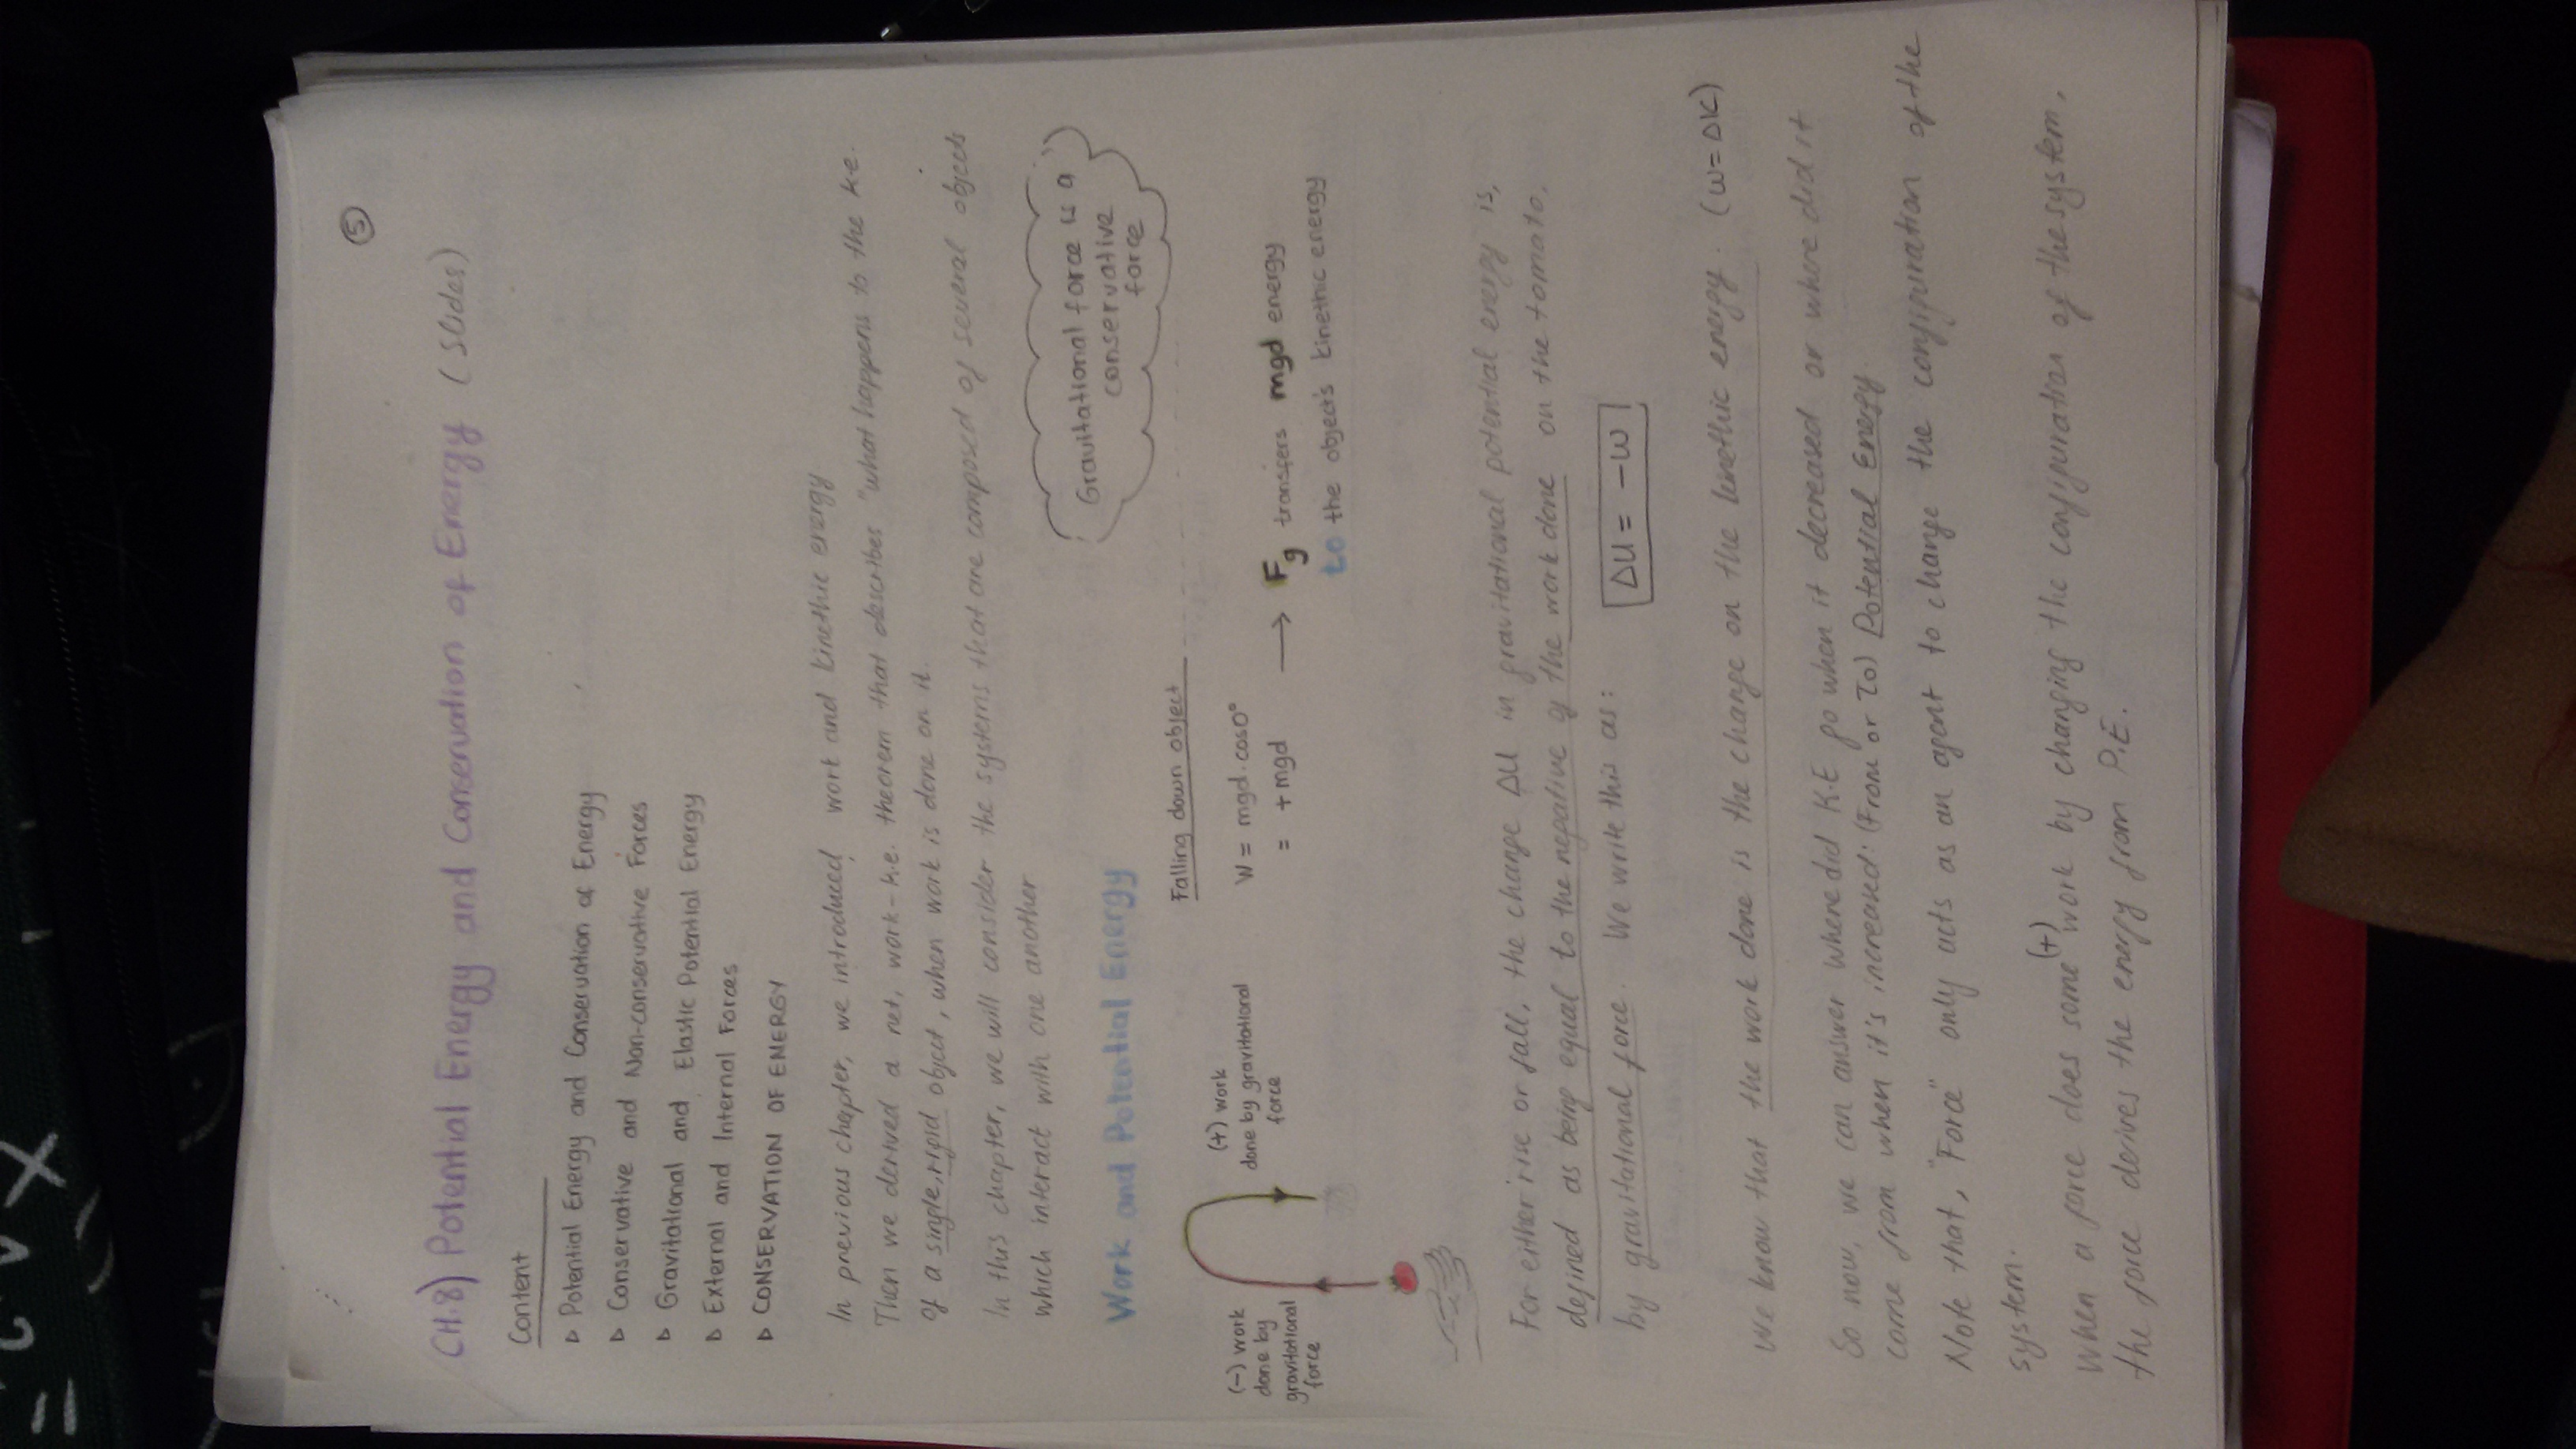 5
CH.8) Potential Energy and Conservation of Energy (Slides)
Content
▷ Potential Energy and Conservation of Energy
▷ Conservative and Non-conservative Forces
▷ Gravitational and Elastic Potential Energy
▷ External and Internal Forces
▷ CONSERVATION OF ENERGY
In previous chapter, we introduced work and kinethic energy
Then we derived a net, work-k.e. theorem that describes "what happens to the k.e.
of a single, rigid object, when work is done on it.
In this chapter, we will consider the systems that are composed of several objects
which interact with one another
Gravitational force is a
conservative
force
Work and Potential Energy
(-) work
done by
gravitational
force
(+) work
done by gravitational
force
Falling down object
W = mgd.cos0°
= +mgd → Fg transfers mgd energy
to the object's kinethic energy
For either rise or fall, the change ΔU in gravitational potential energy is,
defined as being equal to the negative of the work done on the tomato,
by gravitational force. We write this as: ΔU = -W
We know that the work done is the change on the kinethic energy. (W=ΔK)
So now, we can answer where did K.E go when it decreased or where did it
come from when it's increased: (From or To) Potential Energy
Note that, "Force" only acts as an agent to change the configuration of the
system.
When a force does some (+) work by changing the configuration of the system,
the force derives the energy from P.E.